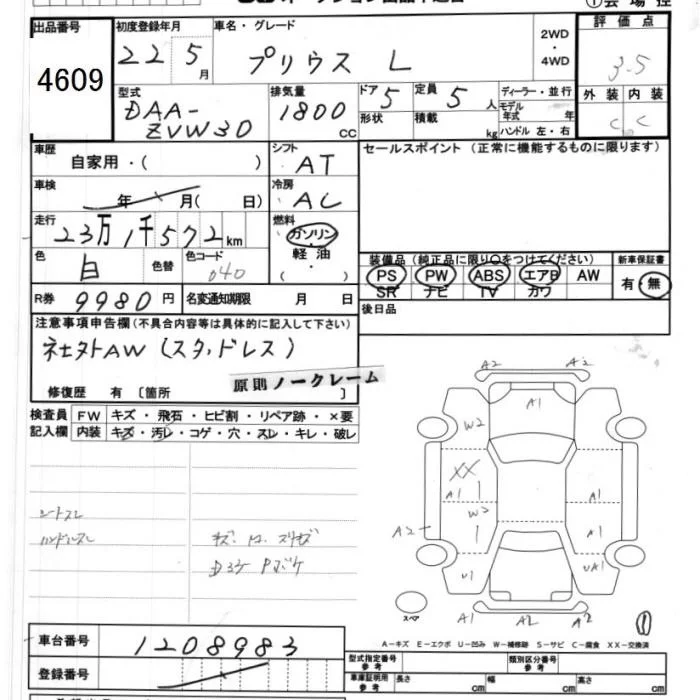 出品番号
4609
初度登録年月
22 5月
車名・グレード
プリウス L
2WD
・
4WD
評価点
3.5
外装 内装
C C
型式
DAA-
ZVW30
排気量
1800
CC
ドア 5
形状
定員 5人
積載 kg
ディーラー・並行
モデル
年式 年
ハンドル 左・右
車歴
自家用・( )
シフト
AT
セールスポイント(正常に機能するものに限ります)
車検
年 月( 日)
冷房
AC
走行
23万1千572km
燃料
ガソリン
・
軽油
( )
色
白
色替
色コード
040
装備品(純正品に限り○をつけてください)
PS PW ABS エアB AW
SR ナビ TV カワ
新車保証書
有・無
R券 9980円
名変通知期限 月 日
後日品
注意事項申告欄(不具合内容等は具体的に記入して下さい)
社外AW(スタッドレス)
原則ノークレーム
修復歴 有〔箇所 〕
検査員
記入欄
FW キズ・飛石・ヒビ割・リペア跡・×要
内装 キズ・汚レ・コゲ・穴・スレ・キレ・破レ
シートスレ
ハンドルスレ
A2 A2
A1
W2
XX
A1
W2
A1
A1
A2
U1
UA1
A1 A2 A2
スペア
A-キズ E-エクボ U-凹み W-補修跡 S-サビ C-腐食 XX-交換済
車台番号
1208983
登録番号
型式指定番号
参考
類別区分番号
参考
車庫証明用
参考
長さ cm 幅 cm 高さ cm